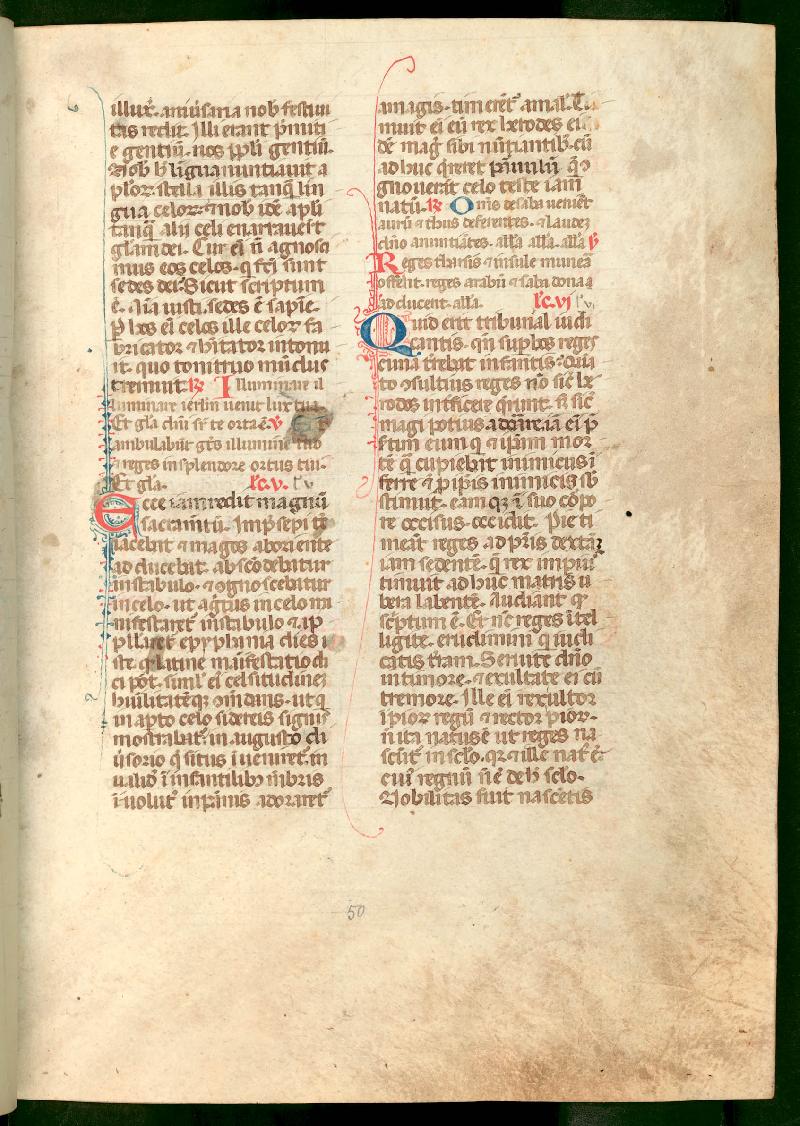 illuxᷣ. aniūsaria nob festiui
tas rediit. Illi erant pᷣmiti
e gentiū. nos ppl̄i gentiū.
Nob h̄ lingua nuntiauit a
plor. stella illis tanq̄ lin
gua celor. ⁊ nob idē apl̄i
tanq̄ alij celi enarrauerᷣt
gl̄am dei. Cur ei n̄ agnosci
mus eos celos. q fc̄i sunt
sedes dei. Sicut scriptum
ē. Aīa iusti. sedes ē sapīe.
P hos ei celos ille celor fa
bricator ⁊ hītator intonu
it. quo tonitruo mūdus
tremuit. ℟ Illuminare il
luminare ierl̄m uenit lux tua.
Et gl̄a dn̄i sr̄ te orta ē. ℣ Et
ambulabūt gn̄s i lumine tuo
⁊ reges in splendore ortus tui.
Et gl̄a. lc̄. v. lc̄ v
Ecce iam redit magnū
sacramtū. Imp̄sepi tē
iacebat ⁊ magos ab oriente
adducebat. abscōdebatur
in stabulo. ⁊ ognoscebatur
in celo. ut agtus in celo ma
nifestaret in stabulo ⁊ ap
pellaret epyphania dies i
ste. q latine manifestatio di
ci pōt. siml̄ ei celsitudinez
humilitatēq ⁊ om̄dans. ut q
in apto celo sidereis signis
mostrabatᷣ. in augusto di
uersorio q̄situs iueniretᷣ. in
ualid i infantilib mēbris
iuolutᷣ in pānis adoraretᷣ
a magis. timeretᷣ a malis. Ti
muit ei eū rex herodes eis
dē magᷣ sibi nūtiantib. cū
ad huc q̄reret paruulū q̄
gnouerat celo teste iam
natū. ℟ Om̄s de saba ueniēt
aurū ⁊ thus deferentes. ⁊ laudez
dn̄o anuntiātes. all̄a all̄a. all̄a ℣
Reges tharsis ⁊ insule munēa
offerēt. reges arabū ⁊ saba dona a
adducent. all̄a. lc̄. vi lc̄ vi
Quid erit tribunal iudi
cantis. qn̄ suᷣbos reges
cuna trebat infantis. Cūa
to osultius reges nō sic he
rodes interficere q̄runt. s; sic
magi potius adorare. iā ei p
sētim eum q ⁊ ip̄am mor
tē q̄ cupiebat inimicus i
ferre ⁊ p ip̄is inimicis sb
stinuit. eam q; i suo corpo
re occisus. occidit. Pie ti
meāt reges ad pr̄is dextā;
iam sedentē. q̄ rex impius
timuit ad huc matris u
bera labentē. Audiant q
scriptum ē. Et nc̄ reges itel
ligite. erudimini q iudi
catis tr̄am. Seruite dn̄o
in timore. ⁊ exultate ei cū
tremore. Ille ei rex ultor
ipior regū ⁊ rector pior.
n̄ ita natus ē ut reges na
scūtᷣ in sclo. q; ⁊ ille natᷣ ē
cui regnū n̄ ē de h̄ sclo.
Nobilitas fuit nascētis
50